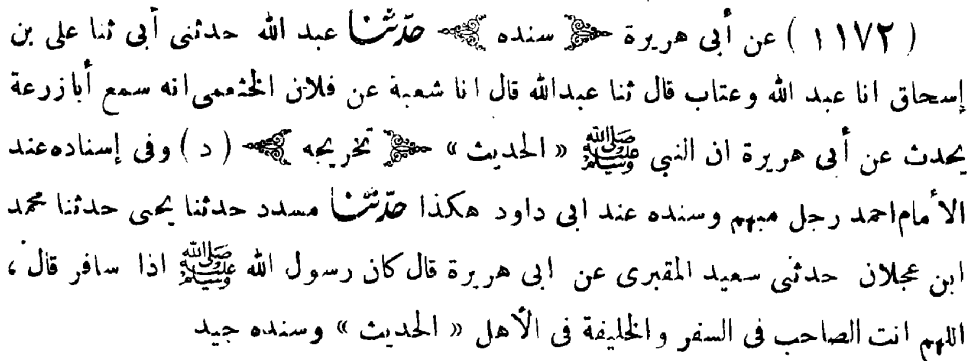 ( ١١٧٢ ) عن أبى هريرة ﴿ سنده ﴾ حدّثنا عبد الله حدثنى أبى ثنا على بن
إسحاق انا عبد الله وعتاب قال ثنا عبدالله قال انا شعبة عن فلان الخثعمى انه سمع أبازرعة
يحدث عن أبى هريرة ان النبى ﷺ « الحديث » ﴿ تخريجه ﴾ ( د ) وفى إسناده عند
الأمام احمد رجل مبهم وسنده عند ابى داود هكذا حدّثنا مسدد حدثنا يحيى حدثنا محمد
ابن عجلان حدثنى سعيد المقبرى عن ابى هريرة قال كان رسول الله ﷺ اذا سافر قال ،
اللهم انت الصاحب فى السفر والخليفة فى الأهل « الحديث » وسنده جيد